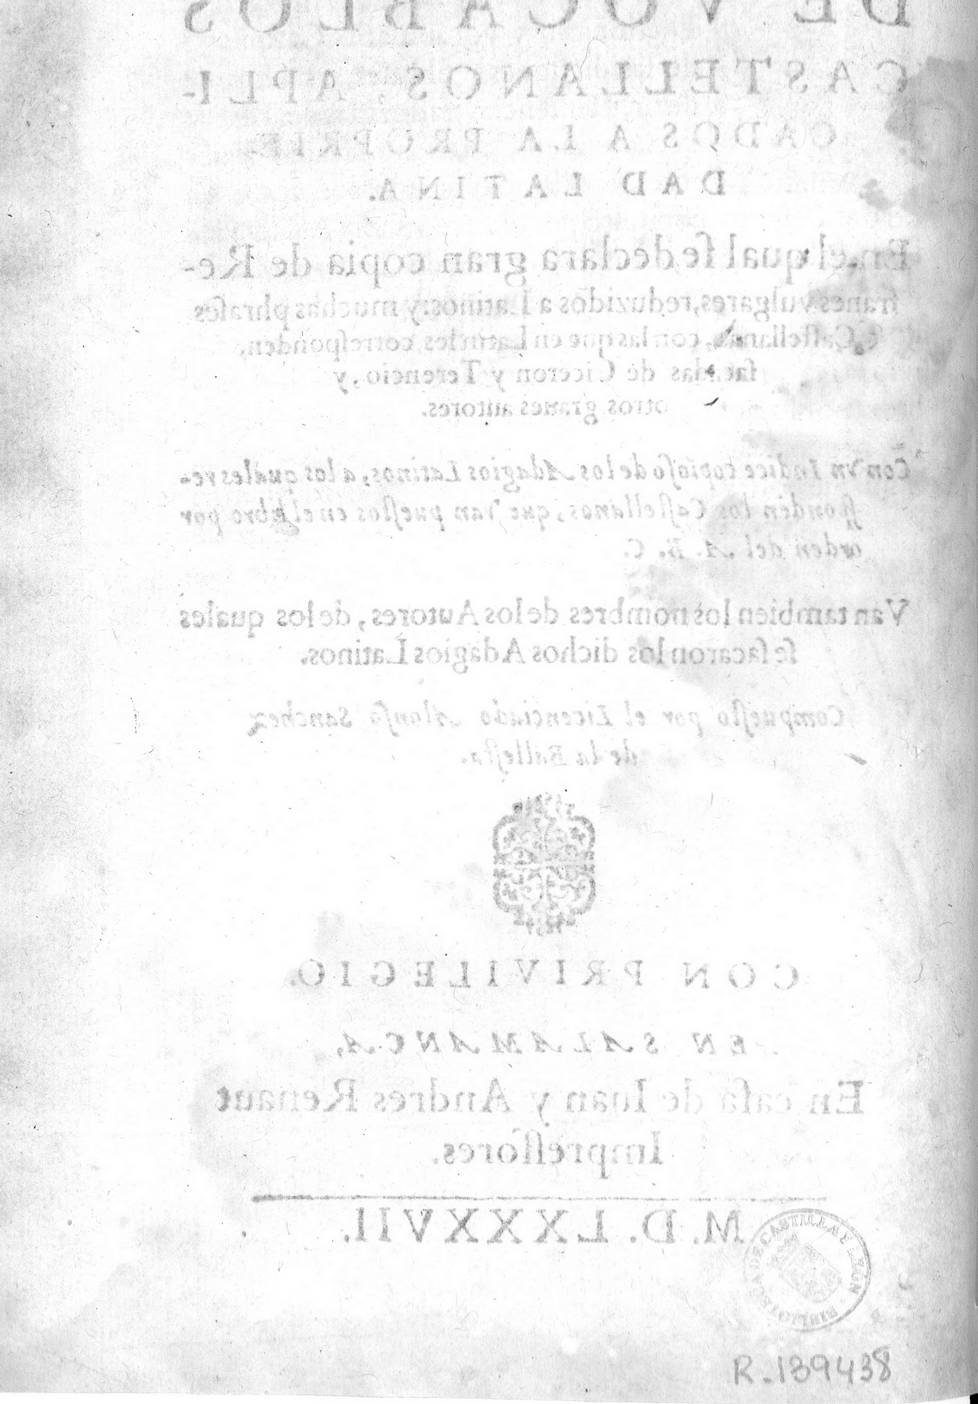 DE VOCABLOS
CASTELLANOS, APLI-
CADOS A LA PROPRIE-
DAD LATINA.
En el qual se declara gran copia de Re-
franes vulgares, reduzidos a Latinos: y muchas phrases
Castellanas, con las que en Latin les corresponden,
sacadas de Ciceron y Terencio, y
otros graues autores.
Con vn Indice copioso de los Adagios Latinos, a los quales re-
sponden los Castellanos, que van puestos en el libro por
orden del A. B. C.
Van tambien los nombres de los Autores, de los quales
se sacaron los dichos Adagios Latinos.
Compuesto por el Licenciado Alonso Sanchez
de la Ballesta.
CON PRIVILEGIO.
EN SALAMANCA,
En casa de Iuan y Andres Renaut
Impressores.
M. D. LXXXVII.
BIBLIOTECA DE CASTILLA Y LEON
R.139438